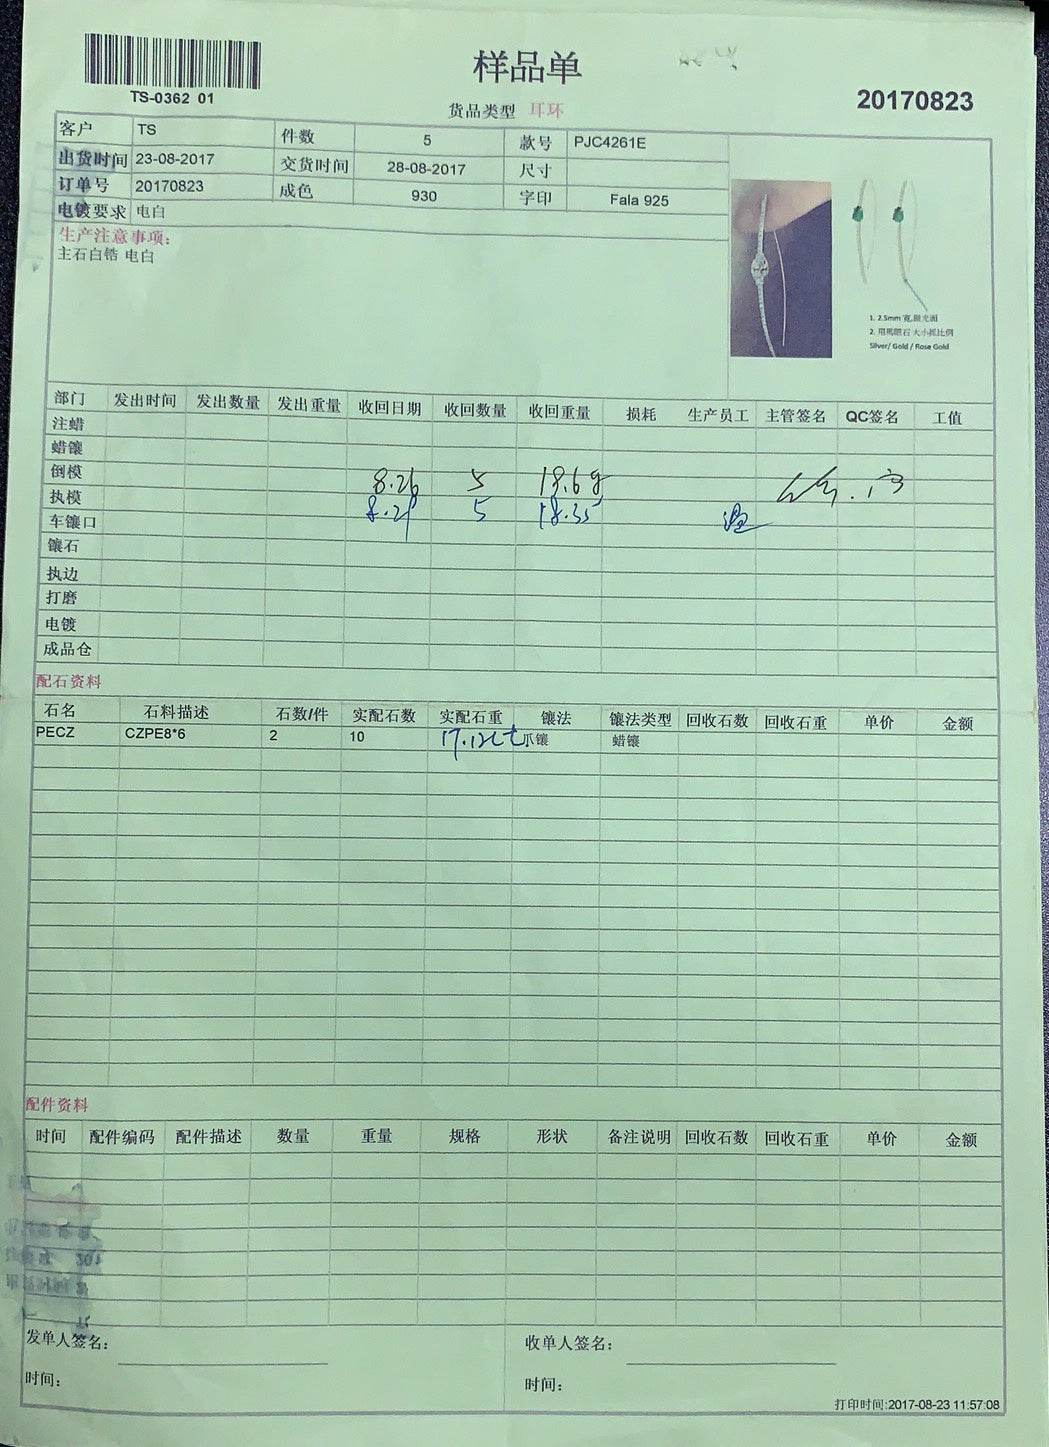 样品单
TS-0362 01
货品类型 耳环
20170823
客户 TS 件数 5 款号 PJC4261E
出货时间 23-08-2017 交货时间 28-08-2017 尺寸
订单号 20170823 成色 930 字印 Fala 925
电镀要求 电白
生产注意事项:
主石白锆 电白
1. 2.5mm 宽,
2. 用 石 大小抓比例
Silver/ Gold / Rose Gold
部门 发出时间 发出数量 发出重量 收回日期 收回数量 收回重量 损耗 生产员工 主管签名 QC签名 工值
注蜡
蜡镶
倒模 8.26 5
执模
车镶口 5 18.35
镶石
执边
打磨
电镀
成品仓
配石资料
石名 石料描述 石数/件 实配石数 实配石重 镶法 镶法类型 回收石数 回收石重 单价 金额
PECZ CZPE8*6 2 10 17.12ct 爪镶 蜡镶
配件资料
时间 配件编码 配件描述 数量 重量 规格 形状 备注说明 回收石数 回收石重 单价 金额
发单人签名: 收单人签名:
时间: 时间:
打印时间:2017-08-23 11:57:08